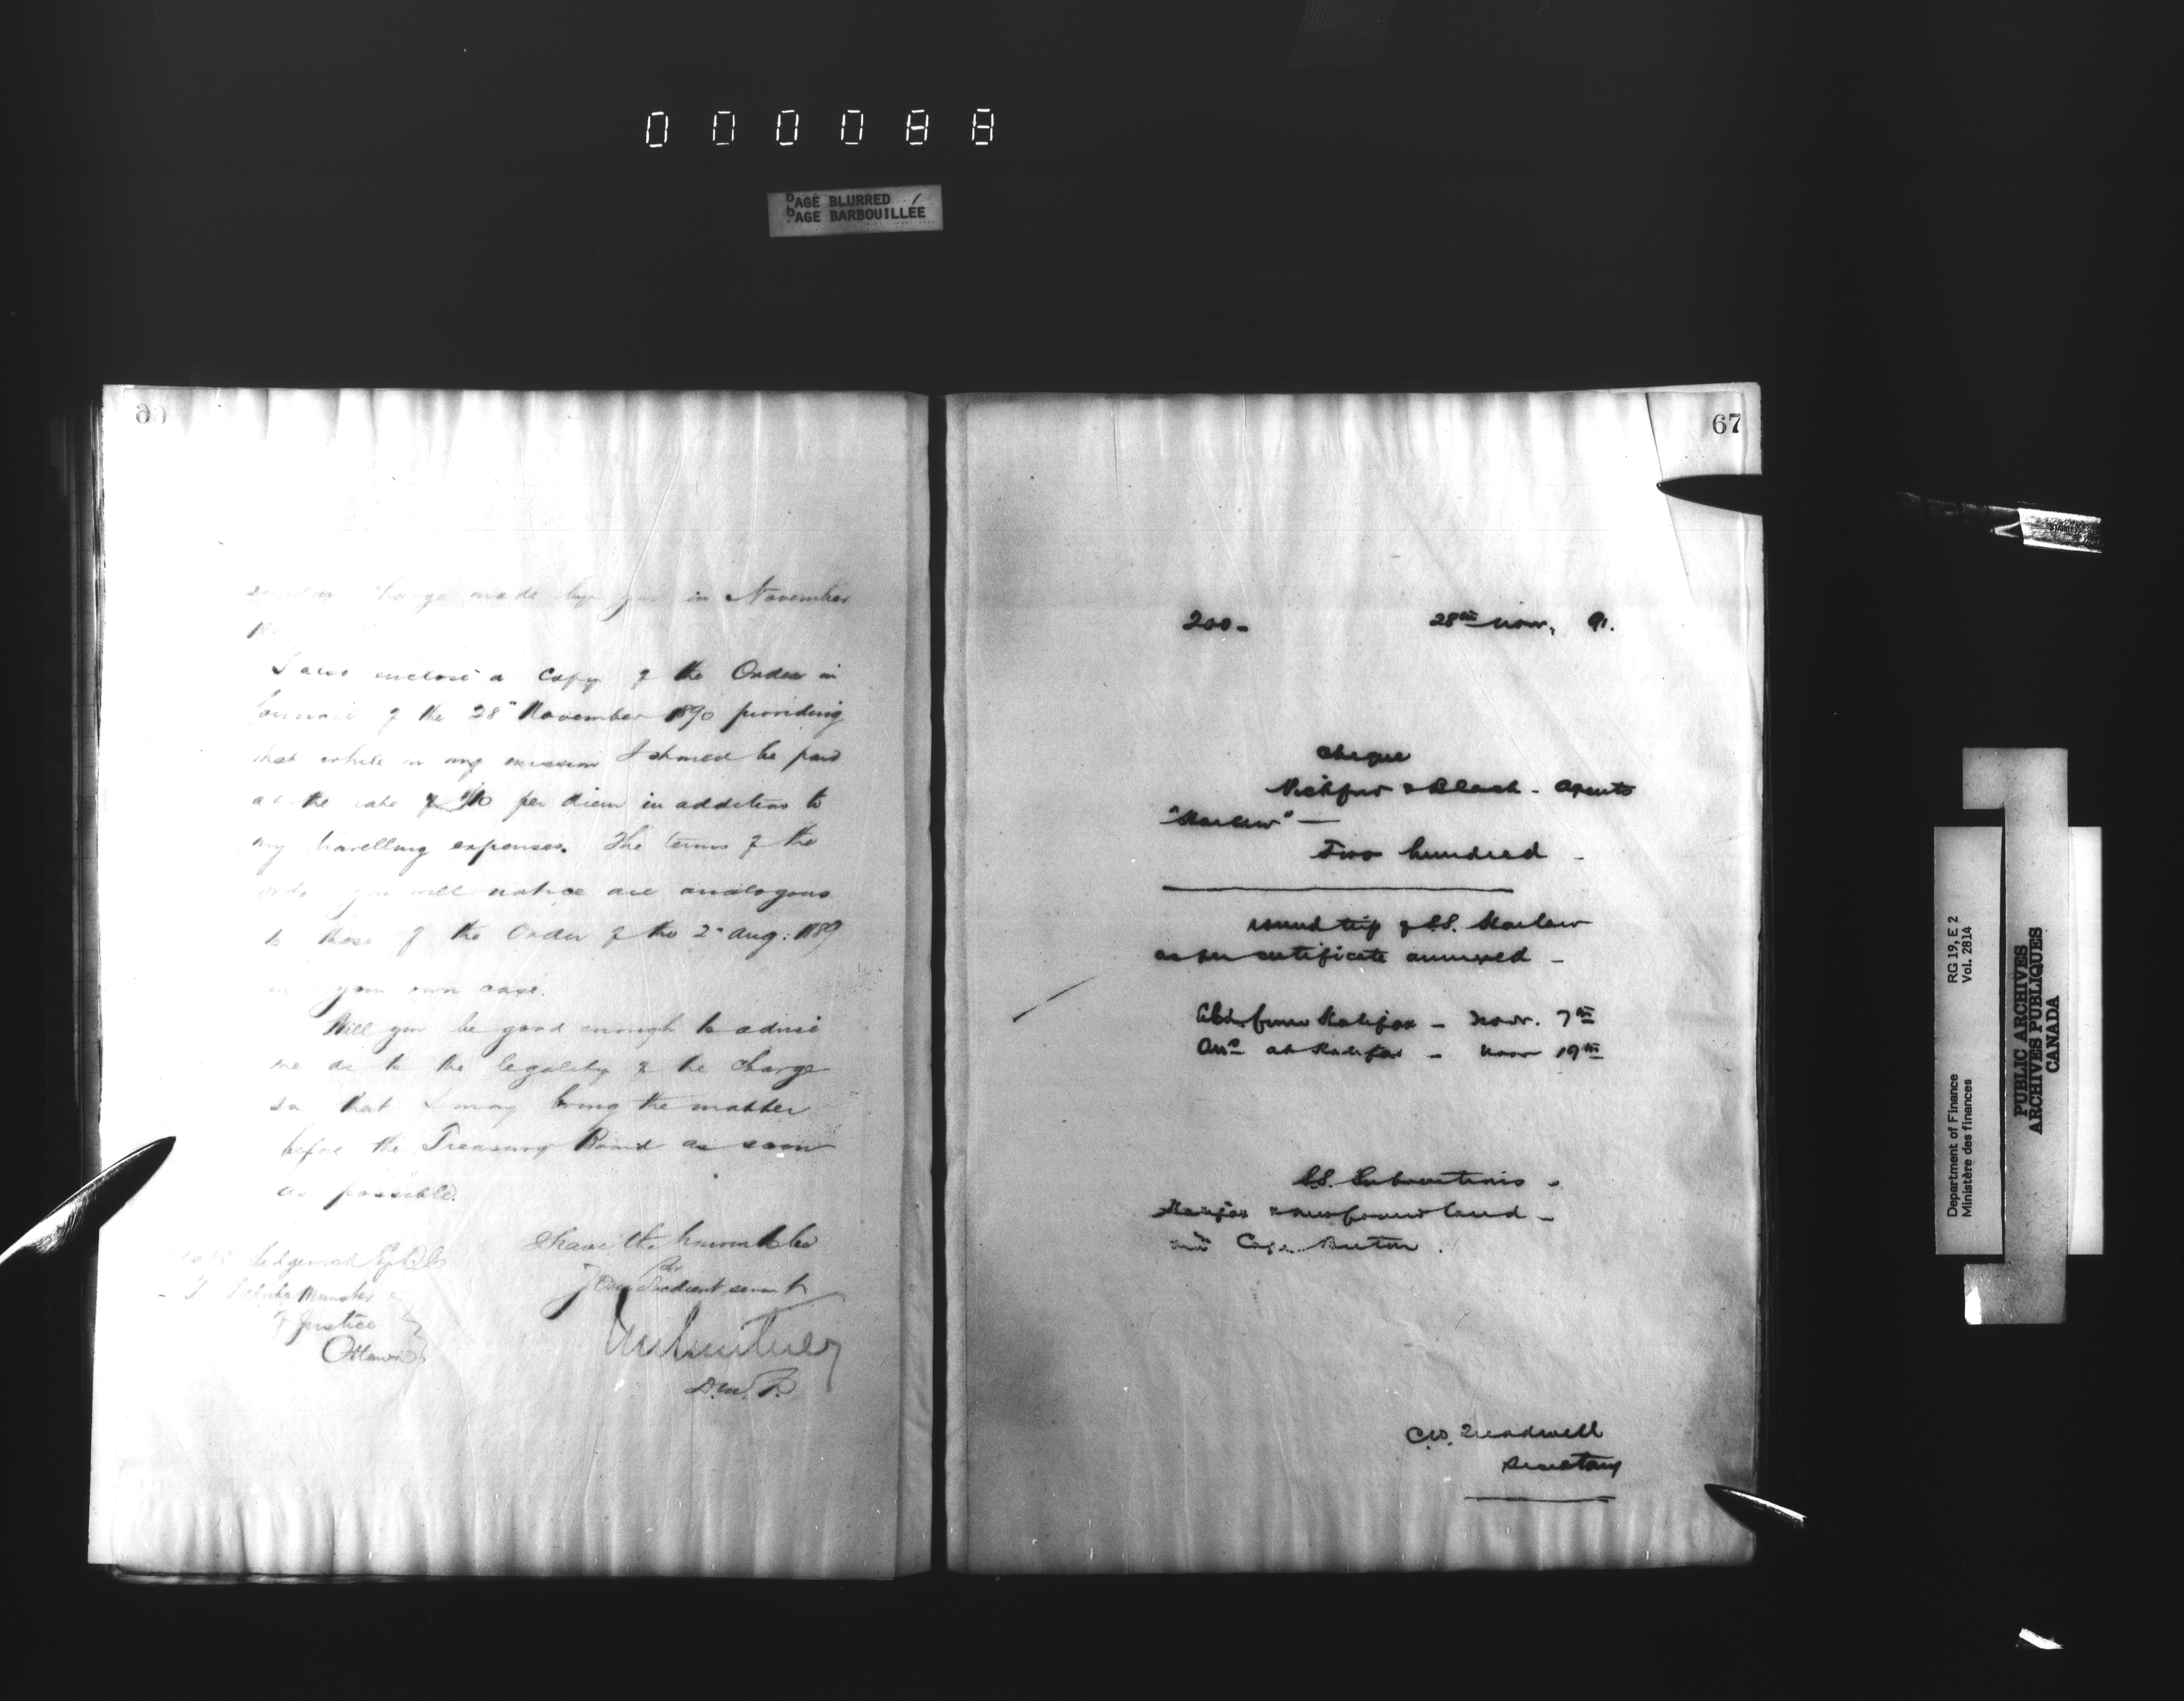 000088
PAGE BLURRED
PAGE BARBOUILLÉE
66
charge made by you in November
I also enclose a copy of the Order in
Council of the 28" November 1890 providing
that while on my mission I should be paid
at the rate of $10 per diem in addition to
my travelling expenses. The terms of the
order you will notice are analogous
to those of the Order of the 2" Aug: 1889
in your own case.
Will you be good enough to advise
me as to the legality of the charge
so that I may bring the matter
before the Treasury Board as soon
as possible.
I have the honour to be
Sir
Your obedient servant
D.M.F.
Sedgewick Esq Q.C.
Deputy Minister
of Justice
Ottawa
67
200-
28th Nov, 91.
Cheque
Pickford & Black - Agents
"Harlaw" —
Two hundred -
round trip of S.S. Harlaw
as per certificate annexed -
from Halifax - Nov. 7th
at Halifax - Nov 19th
S.S. Subventions -
Halifax & Newfoundland -
Cape Breton.
C.W. Treadwell
Secretary
Department of Finance
Ministère des finances
RG 19, E 2
Vol. 2814
PUBLIC ARCHIVES
ARCHIVES PUBLIQUES
CANADA